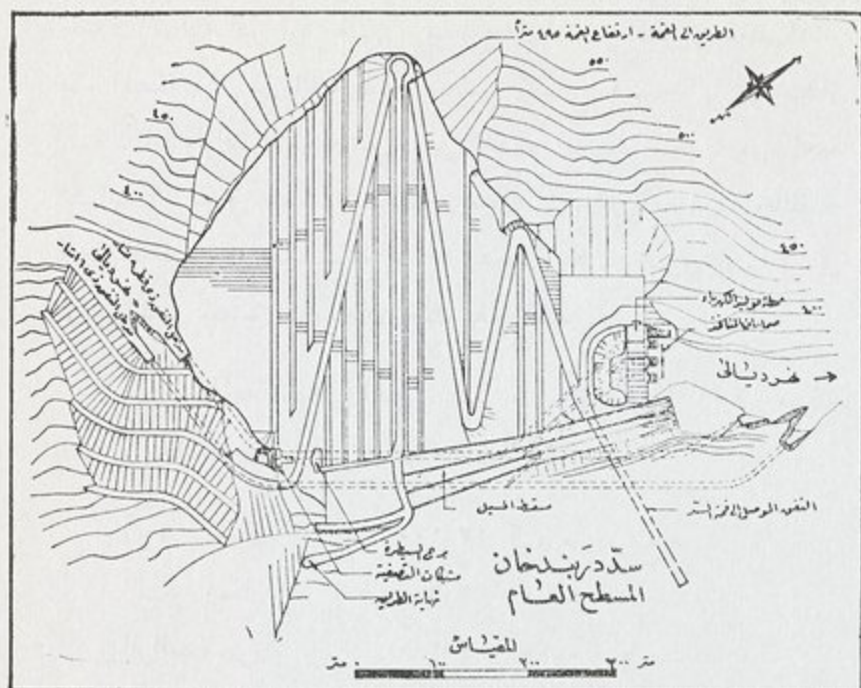 الطريق الى القمة - ارتفاع القمة ٤٩٥ متراً
٥٥٠
٥٠٠
٤٥٠
٤٠٠
٤٥٠
٤٠٠
محطة توليد الكهرباء
صمامات المنافذ
نهر ديالى →
النفق الموصل الى قمة السد
مسقط المسيل
برج السيطرة
مشبكات التصفية
نهاية الطريق
سدّ دربندخان
المسطح العام
المقياس
متر ٠ ١٠٠ ٢٠٠ ٣٠٠ متر